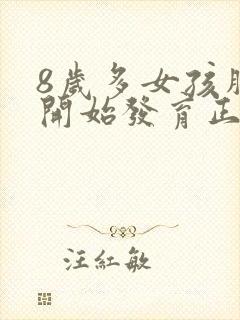 8歲多女孩胸
開始發育正
汪紅敏